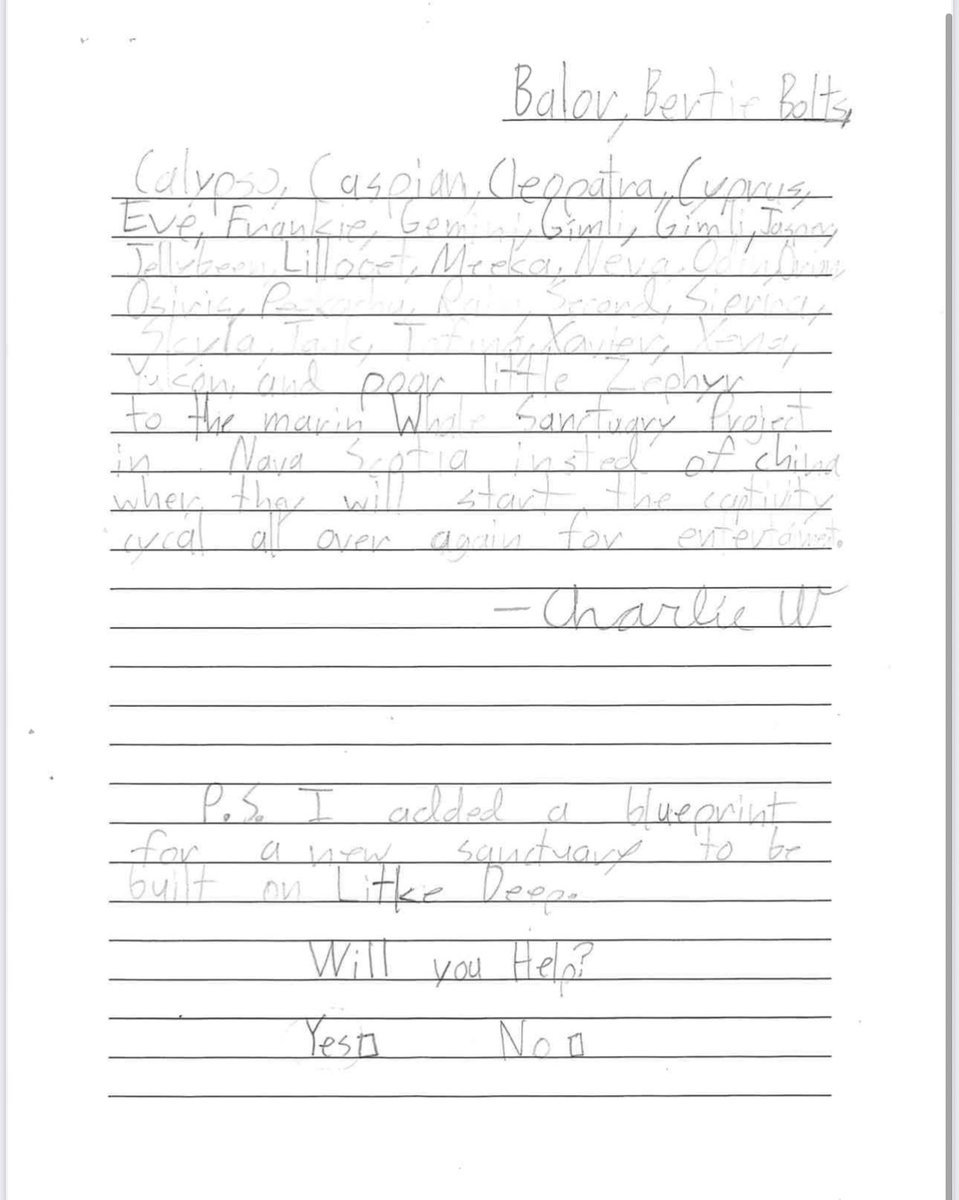 Balov, Bertie Bolts,
Calypso, Caspian, Cleopatra, Cyprus,
Eve, Frankie, Gemini, Gimli, Gimli,
Jellybean, Lillooet, Meeka, Neva, Odin, Orion,
Osiris, Secord, Sierra,
Skyla, Tofino, Xavier, Xena,
Yukon, and poor little Zephyr
to the marin Whale Sanctuary Project
in Nava Scotia insted of china
wher they will start the captivity
cycal all over again for
— Charlie W
P.S. I added a blueprint
for a new sanctuary to be
built on Litke Deep.
Will you Help?
Yes☐ No☐